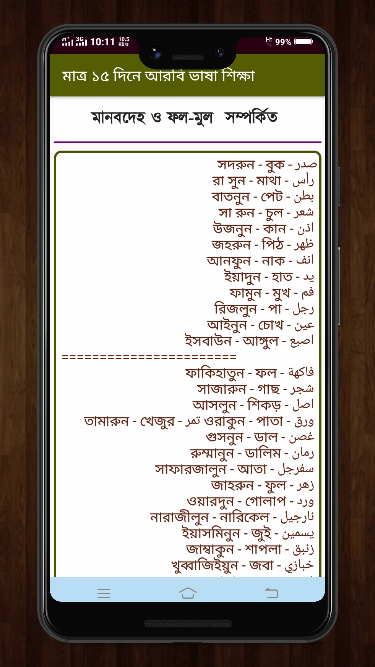 10:11
99%
মাত্র ১৫ দিনে আরবি ভাষা শিক্ষা
মানবদেহ ও ফল-মুল সম্পর্কিত
صدر - বুক - সদরুন
رأس - মাথা - রা সুন
بطن - পেট - বাতনুন
شعر - চুল - সা রুন
اذن - কান - উজনুন
ظهر - পিঠ - জহরুন
انف - নাক - আনফুন
يد - হাত - ইয়াদুন
فم - মুখ - ফামুন
رجل - পা - রিজলুন
عين - চোখ - আইনুন
اصبع - আঙ্গুল - ইসবাউন
=======================
فاكهة - ফল - ফাকিহাতুন
شجر - গাছ - সাজারুন
اصل - শিকড় - আসলুন
ورق - পাতা - ওরাকুন تمر - খেজুর - তামারুন
غصن - ডাল - গুসনুন
رمان - ডালিম - রুম্মানুন
سفرجل - আতা - সাফারজালুন
زهر - ফুল - জাহরুন
ورد - গোলাপ - ওয়ারদুন
نارجيل - নারিকেল - নারাজীলুন
يسمين - জুই - ইয়াসমিনুন
زنبق - শাপলা - জাম্বাকুন
خبازي - জবা - খুব্বাজিইয়ুন